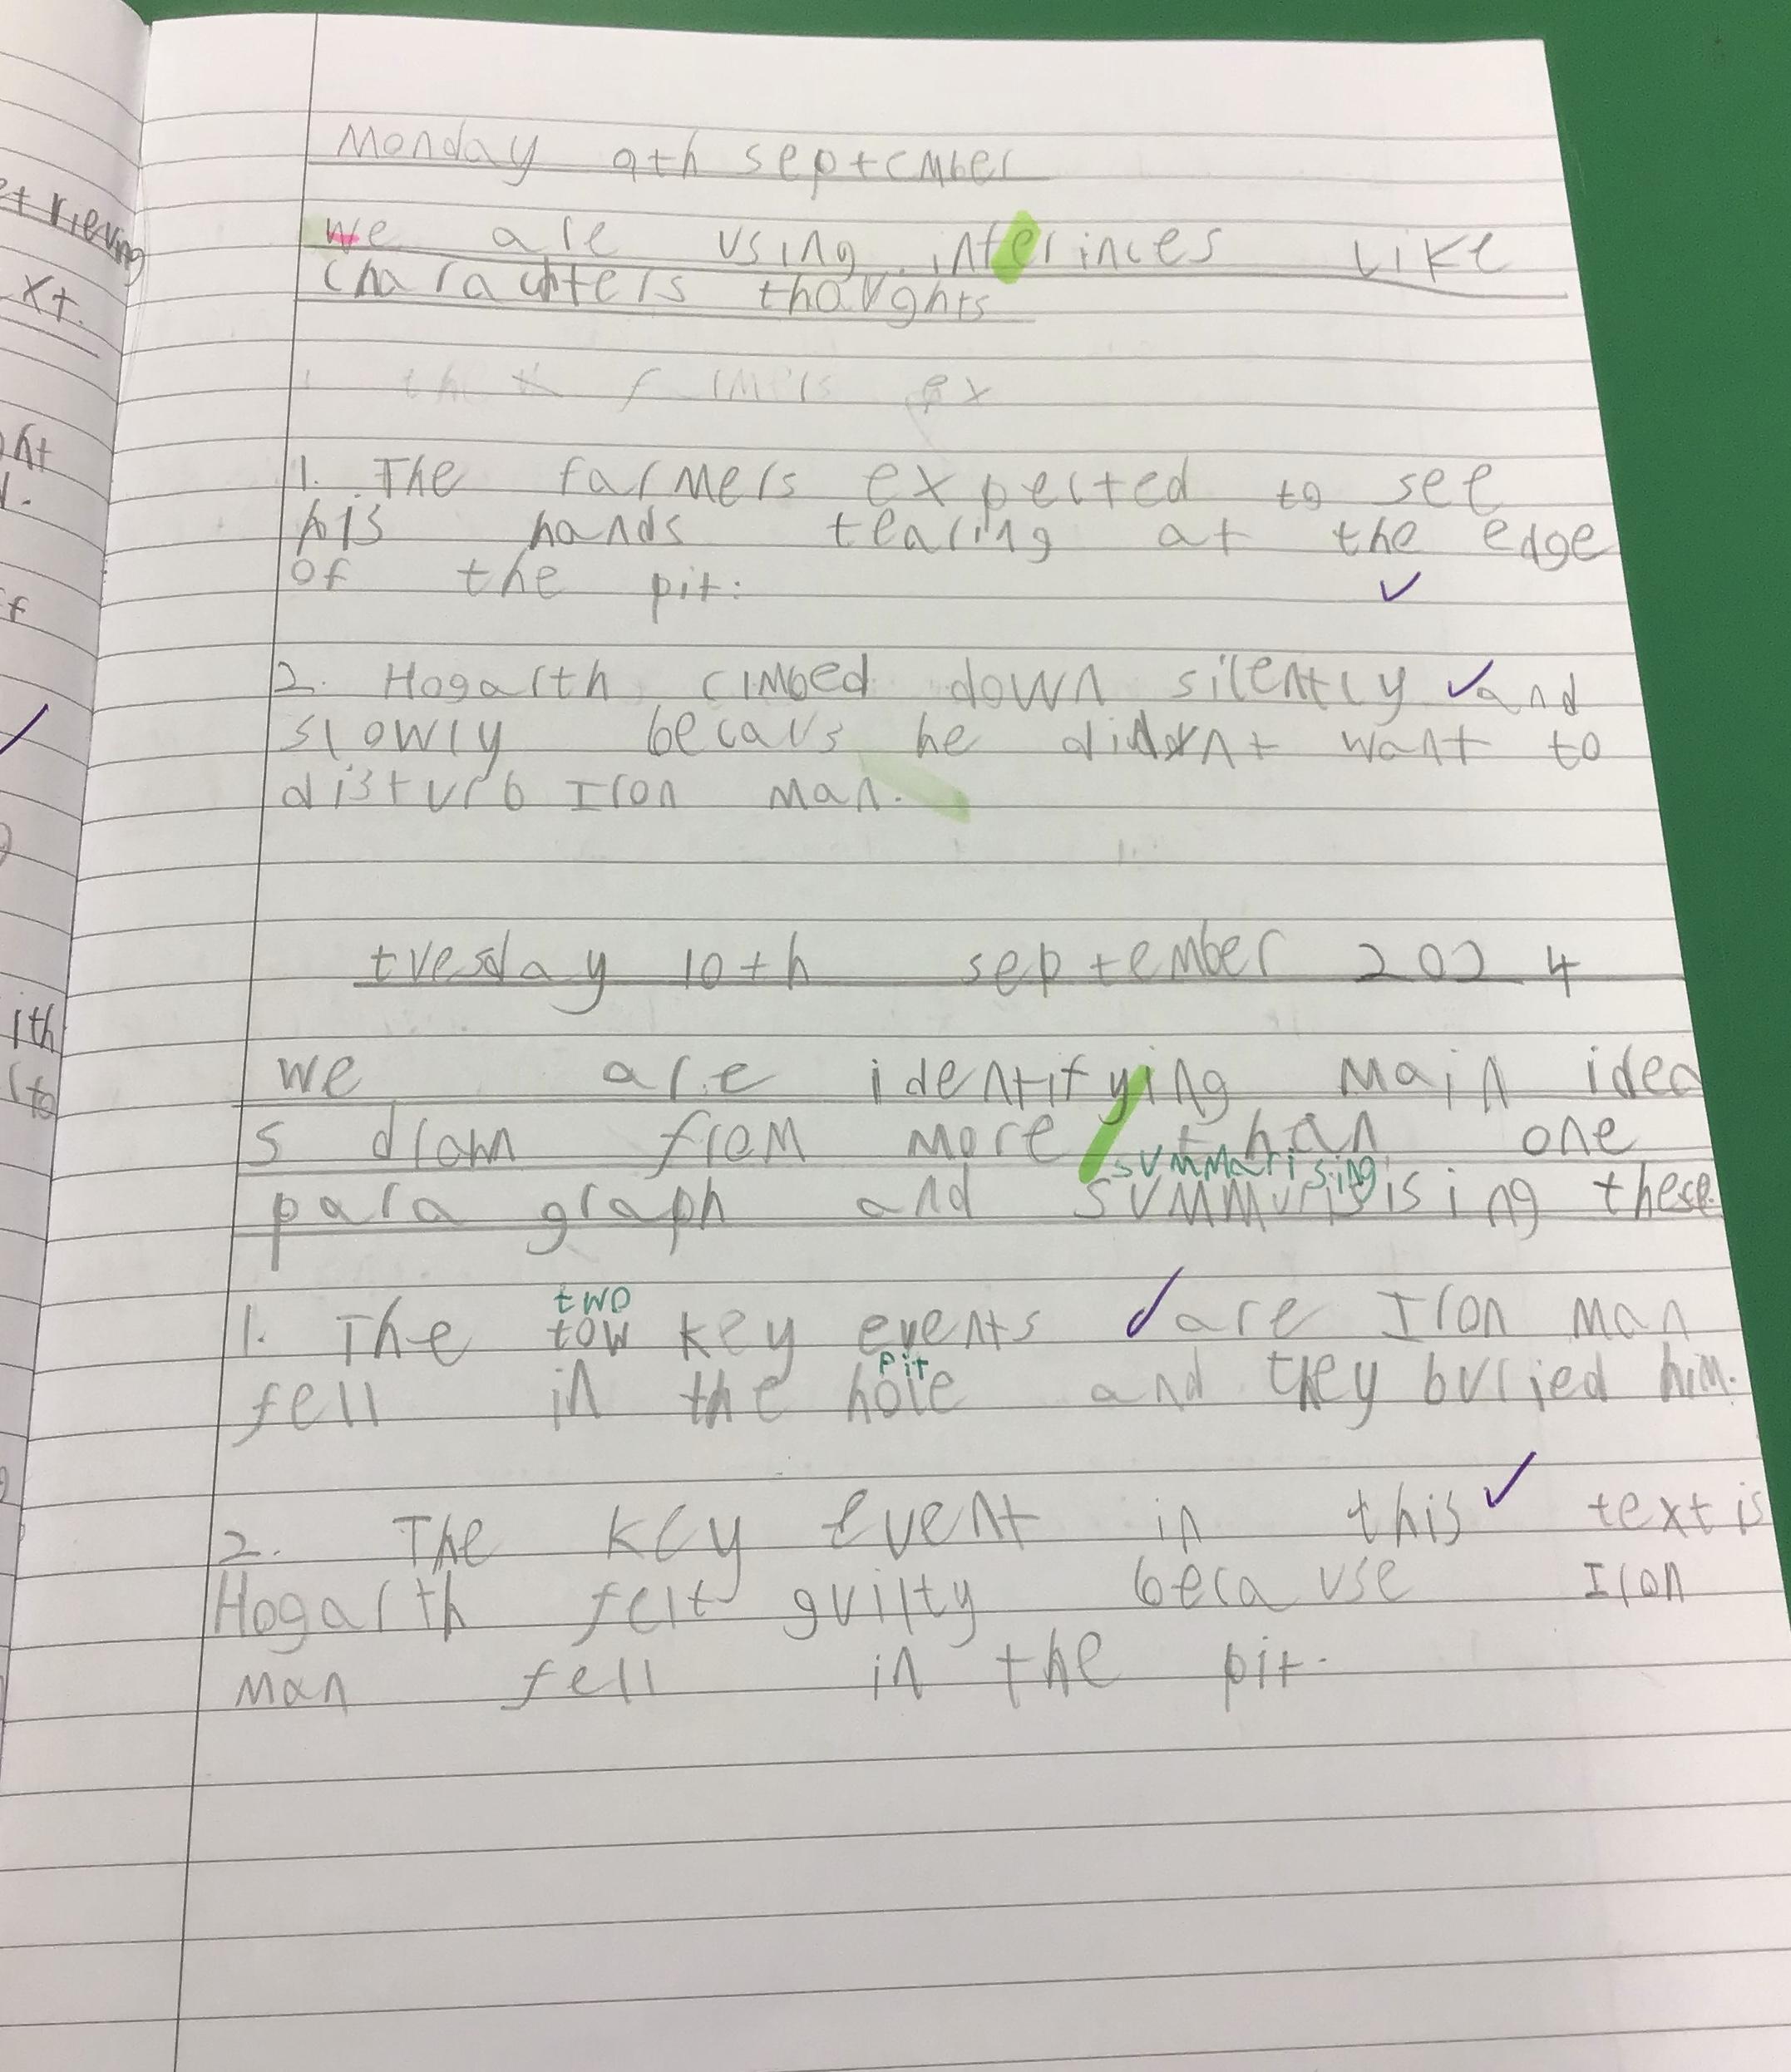 Monday 9th september
we are using inferinces like
charachters thoughts
1. The farmers expected to see
his hands tearing at the edge
of the pit.
2. Hogarth cimbed down silently and
slowly becaus he didnt want to
disturb Iron man.
tuesday 10th september 2024
we are identifying main idea
s drawn from more than one
summarising
para graph and these
two
1. The tow key events are Iron man
pit
fell in the hole and they burried him.
2. The key event in this text is
Hogarth felt guilty beca use Iron
man fell in the pit.